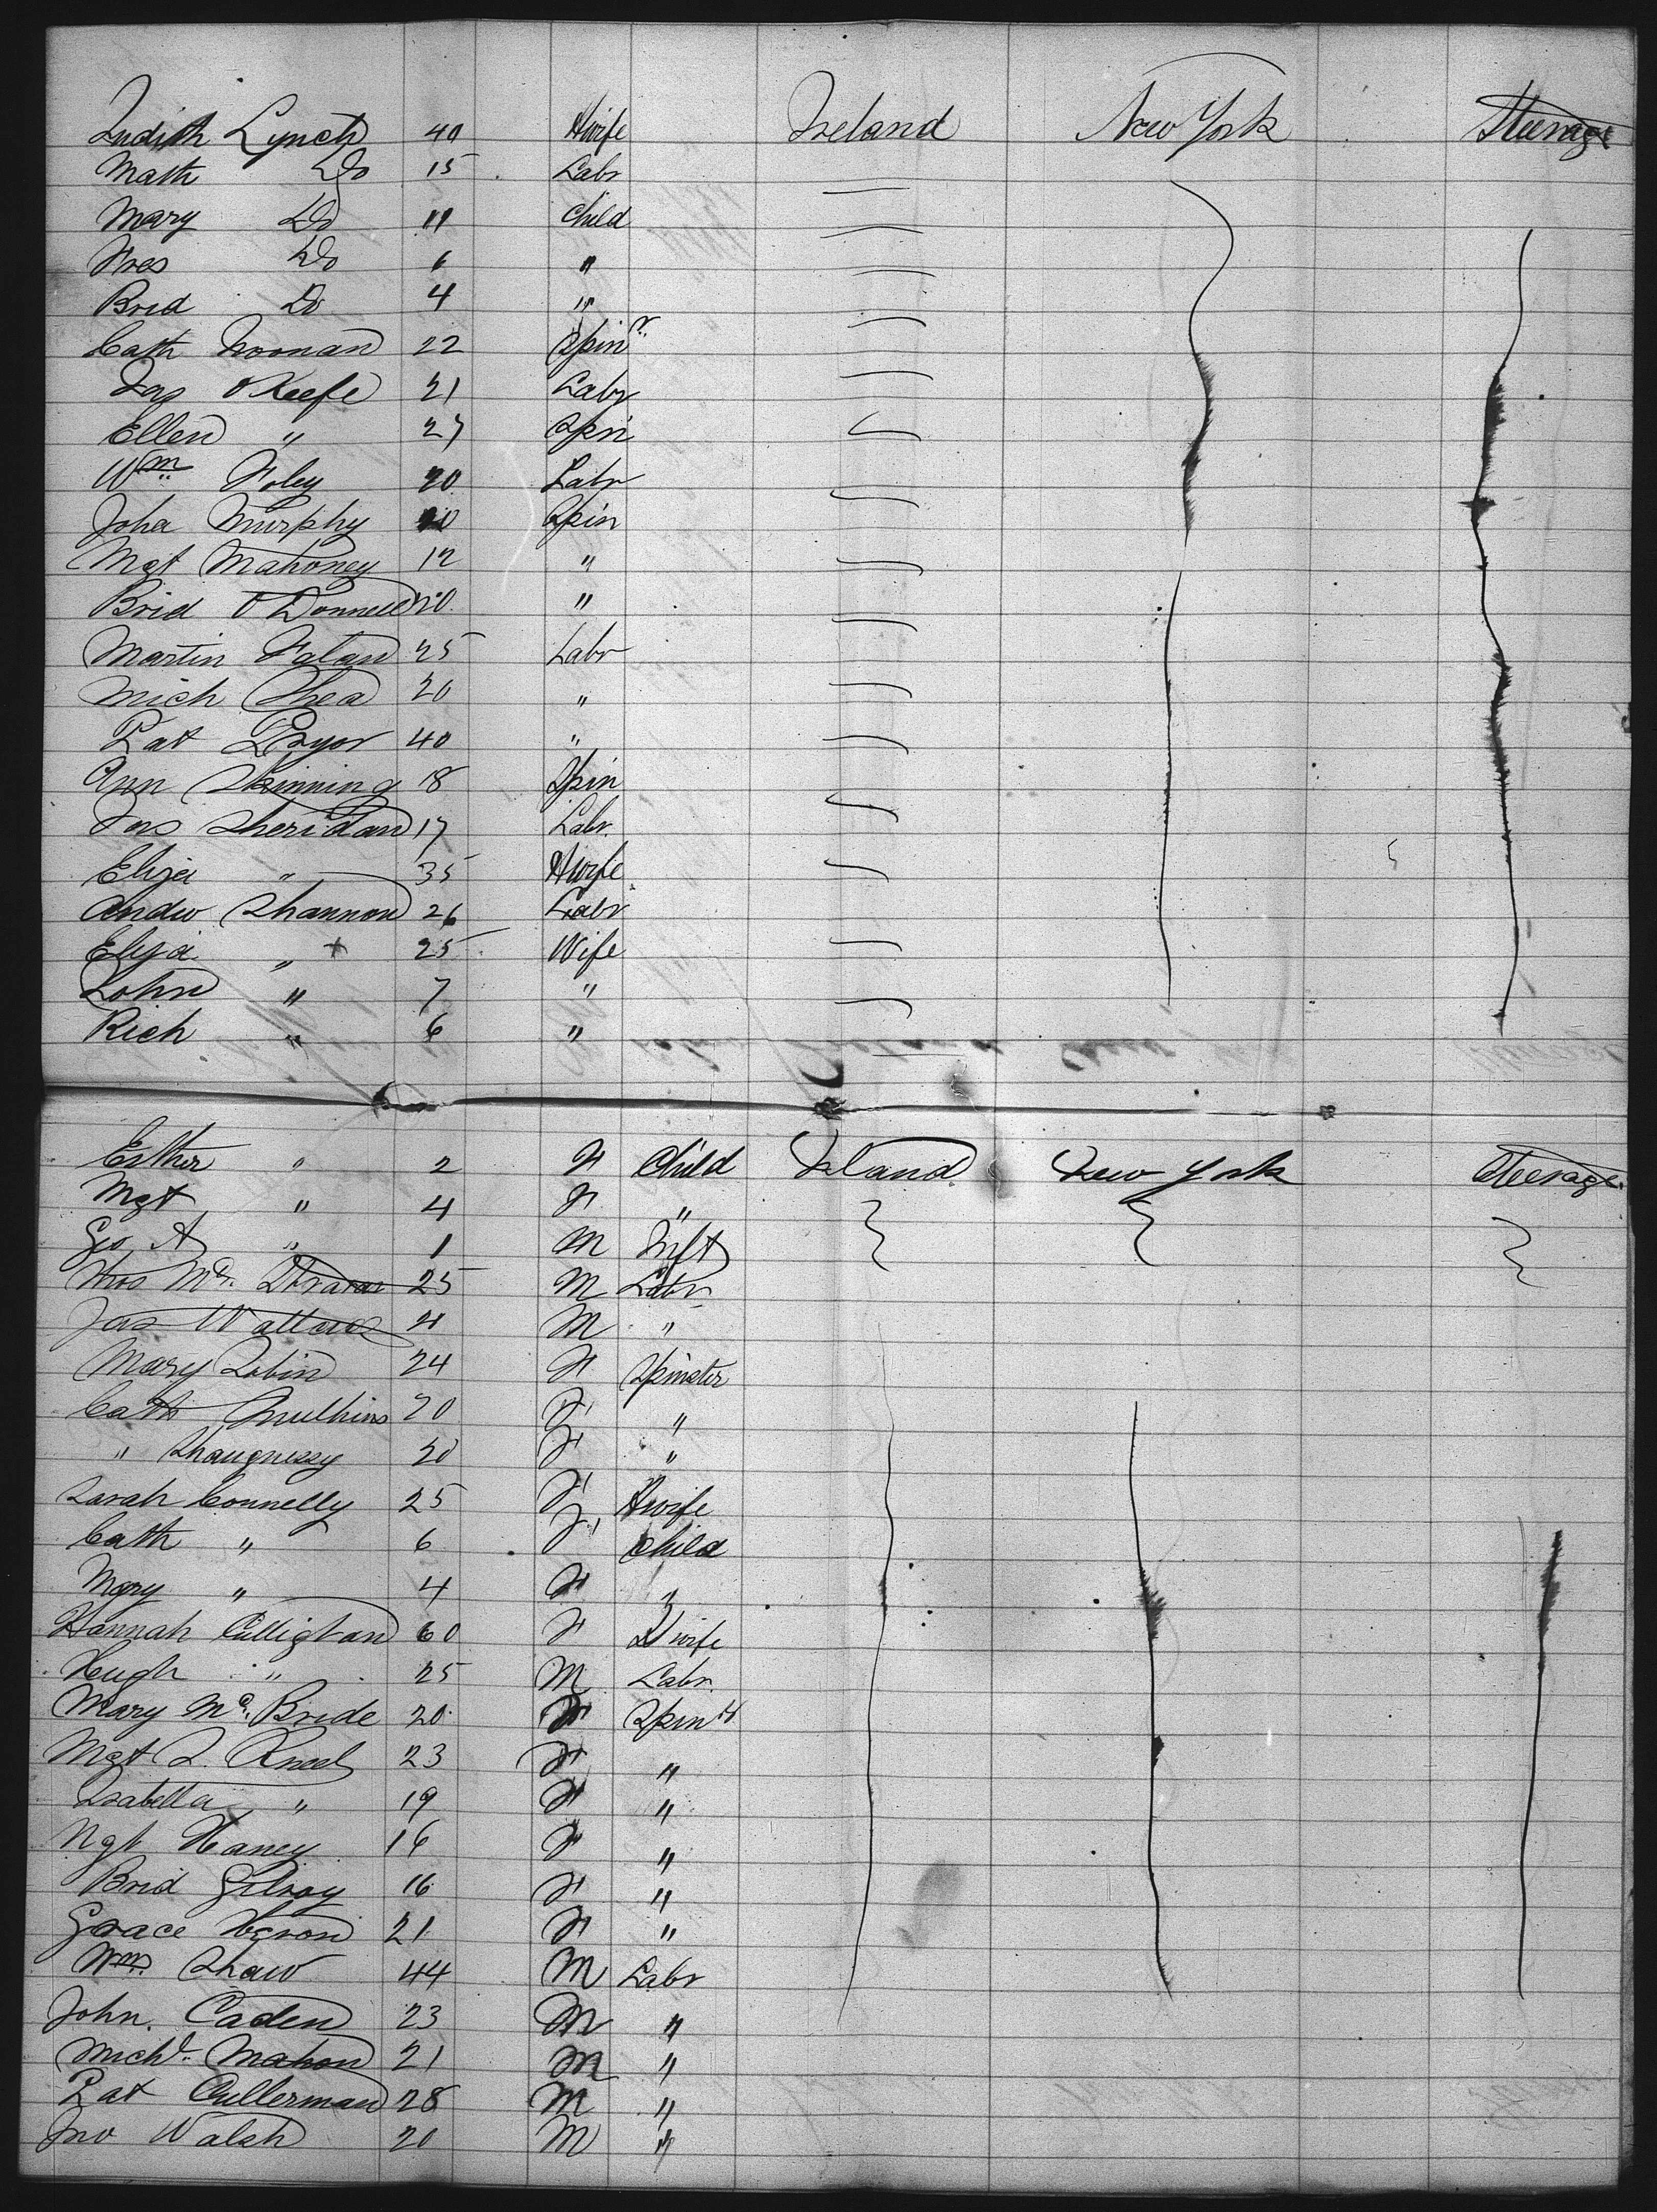 Judith Lynch 40 Hwife Ireland New York Steerage
Math Do 15 Labr
Mary Do 11 Child
Fres Do 6 "
Brid Do 4 "
Cath Noonan 22 Spinr
Jas OKeefe 21 Labr
Ellen " 27 Spin
Wm Foley 20 Labr
Joha Murphy 20 Spin
Mgt Mahoney 12 "
Brid O'Donnell 20 "
Martin Falan 25 Labr
Mich Shea 20 "
Pat Pryor 40 "
Ann Skinning 18 Spin
Jas Sheridan 17 Labr.
Eliza " 35 Hwife
Andw Shannon 26 Labr
Eliza " + 25 Wife
John " 7 "
Rich " 6 "
Esther " 2 F Child Ireland New York Steerage
Mgt " 4 F "
Geo A " 1 M Inft
Thos Mc. 25 M Labr
Jas 21 M "
Mary Tobin 24 F Spinster
Cath Mulhins 20 F "
" Shaugnessy 20 F "
Sarah Connelly 25 F Hwife
Cath " 6 F Child
Mary " 4 F "
Hannah Culligtan 60 F Hwife
Hugh " 25 M Labr.
Mary Mc. Bride 20 F Spin
Mgt 23 F "
Isabella " 19 F "
Mgt Haney 16 F "
Brid Gilroy 16 F "
Grace Heron 21 F "
Wm. Shaw 44 M Labr
John. Caden 23 M "
Michl. Mahon 21 M "
Pat Cullerman 28 M "
Jno Walsh 20 M "